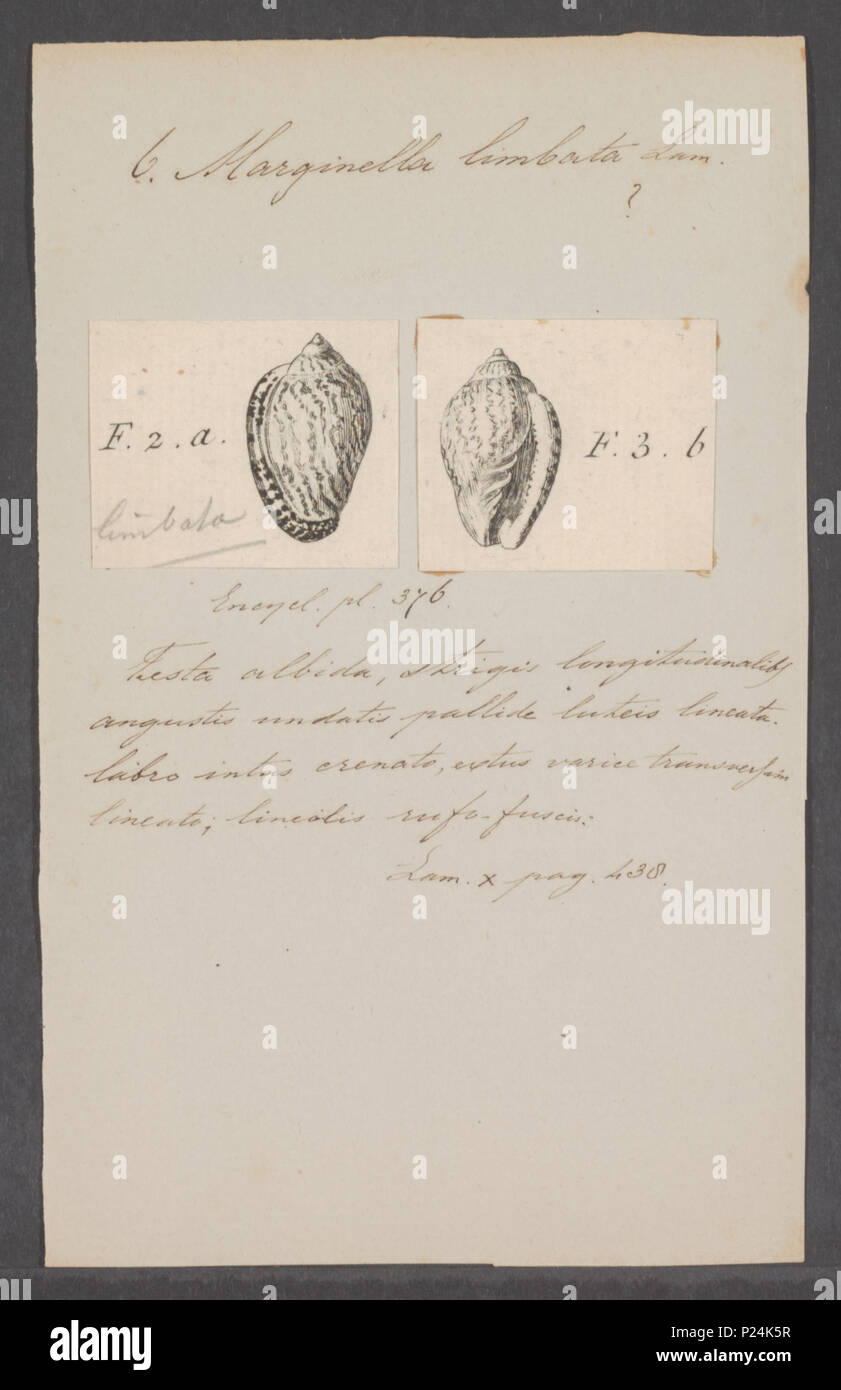 6. Marginella limbata Lam.
?
F. 2. a.
limbata
F. 3. b
Encycl. pl. 376.
Testa albida, strigis longitudinalib9
angustis undatis pallide luteis lineata.
labro intus crenato, extus varice transversim
lineato; lineolis rufo-fuscis:
Lam. x pag. 438.
alamy
Image ID: P24K5R
www.alamy.com